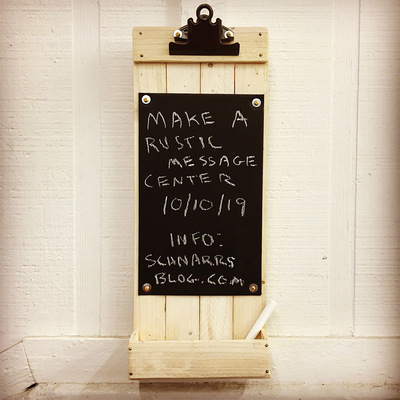 MAKE A
RUSTIC
MESSAGE
CENTER
10/10/19
INFO:
SCHNARRS
BLOG.COM